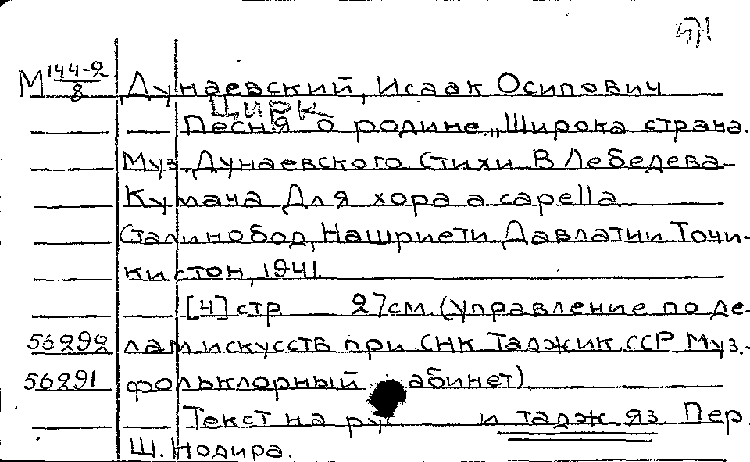 М 144-2/8 Дунаевский, Исаак Осипович
ЦИРК
Песня о родине „Широка страна.
Муз. Дунаевского Стихи В Лебедева
Кумача Для хора a capella
Сталинобод, Нашриети Давлатии Точи-
кистон, 1941
[4] стр 27см. (Управление по де-
56292 лам искусств при СНК Таджик. ССР Муз.-
56291 фольклорный абинет)
Текст на ру и тадж яз Пер
Ш. Нодира.